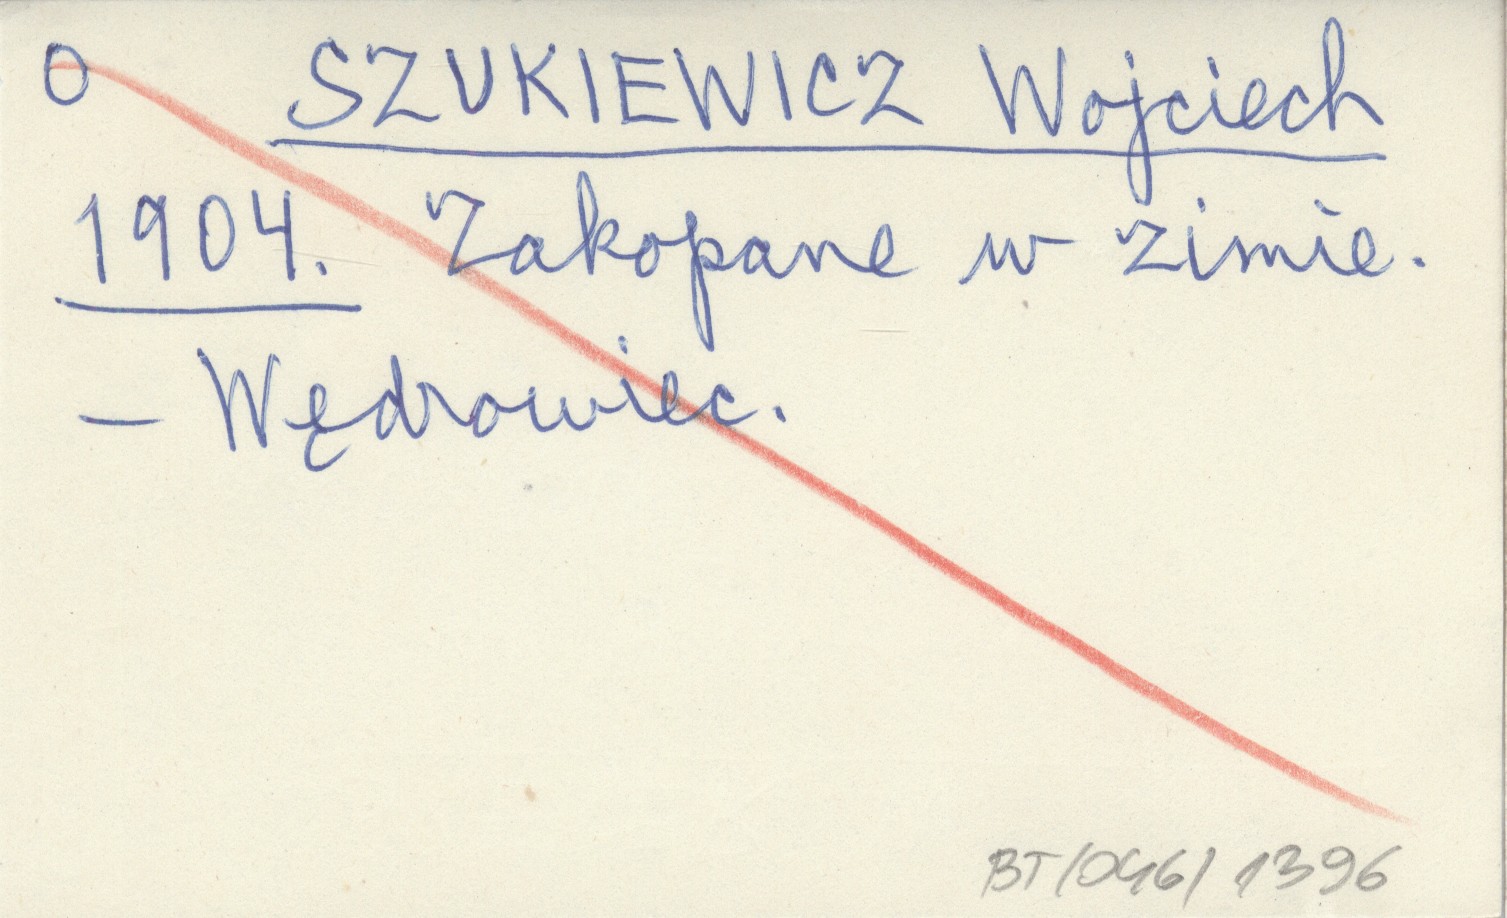 O SZUKIEWICZ Wojciech
1904. Zakopane w zimie.
— Wędrowiec.
BT/046/1396